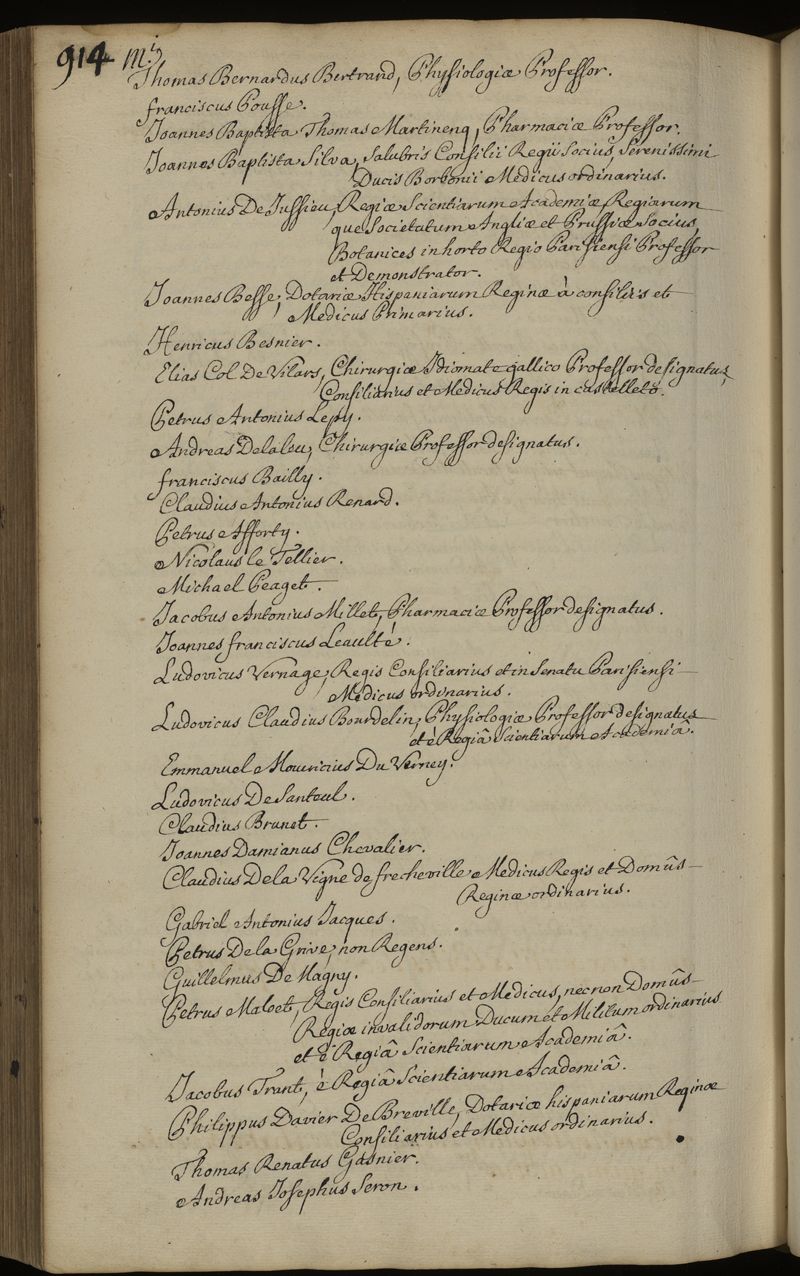 914 M.i
Thomas Bernardus Bertrand, Physiologiæ Professor.
franciscus Pousse.
Joannes Baptista Thomas Martinenq, Pharmaciæ Professor.
Joannes Baptista Silva, Salubris Consilii Regii Socius, Serenissimi
Ducis Borbonii Medicus ordinarius.
Antonius De Jussieu, Regiæ Scientiarum Academiæ, Regiarum
que Societatum Angliæ et Prussiæ Socius,
Botanices in horto Regio Parisiensi Professor
et Demonstrator.
Joannes Besse, Dotariæ Hispaniarum Reginæ à consiliis et
Medicus Primarius.
Henricus Besnier.
Elias Col De Vilars, Chirurgiæ Idiomate gallico Professor designatus,
Consiliarius et Medicus Regis in castelleto.
Petrus Antonius Lepy.
Andreas Delaleu, Chirurgiæ Professor designatus.
franciscus Bailly.
Claudius Antonius Renard.
Petrus Afforty.
Nicolaus le Tellier.
Michael Peaget.
Jacobus Antonius Millet, Pharmaciæ Professor designatus.
Joannes franciscus Leaulté.
Ludovicus Vernage, Regis Consiliarius et in Senatu Parisiensi
Medicus ordinarius.
Ludovicus Claudius Bourdelin, Physiologiæ Professor designatus
et è Regiâ Scientiarum Academiâ.
Emmanuel Mauricius Du Verney.
Ludovicus De Santeul.
Claudius Brunet.
Joannes Damianus Chevalier.
Claudius De la Vigne de frecheville Medicus Regis et Domûs
Reginæ ordinarius.
Gabriel Antonius Jacques.
Petrus De la Grive, non Regens.
Guillelmus De Magny.
Petrus Maloet, Regis Consiliarius et Medicus, nec non Domûs
Regiæ invalidorum Ducum et Militum ordinarius
et è Regiâ Scientiarum Academiâ.
Jacobus Trant, è Regiâ Scientiarum Academiâ.
Philippus Davier De Breville, Dotariæ hispaniarum Reginæ
Consiliarius et Medicus ordinarius.
Thomas Renatus Gasnier.
Andreas Josephus Seron.